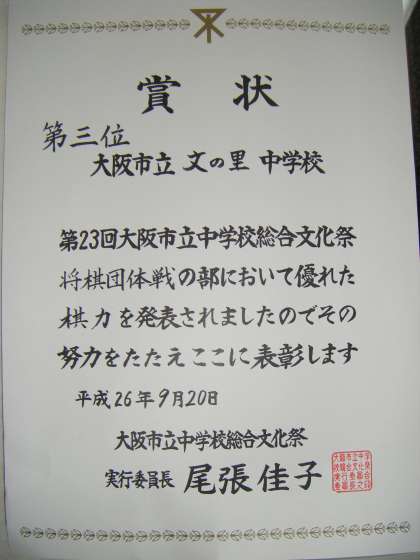 賞状
第三位
大阪市立 文の里 中学校
第23回大阪市立中学校総合文化祭
将棋団体戦の部において優れた
棋力を発表されましたのでその
努力をたたえここに表彰します
平成26年9月20日
大阪市立中学校総合文化祭
実行委員長 尾張佳子